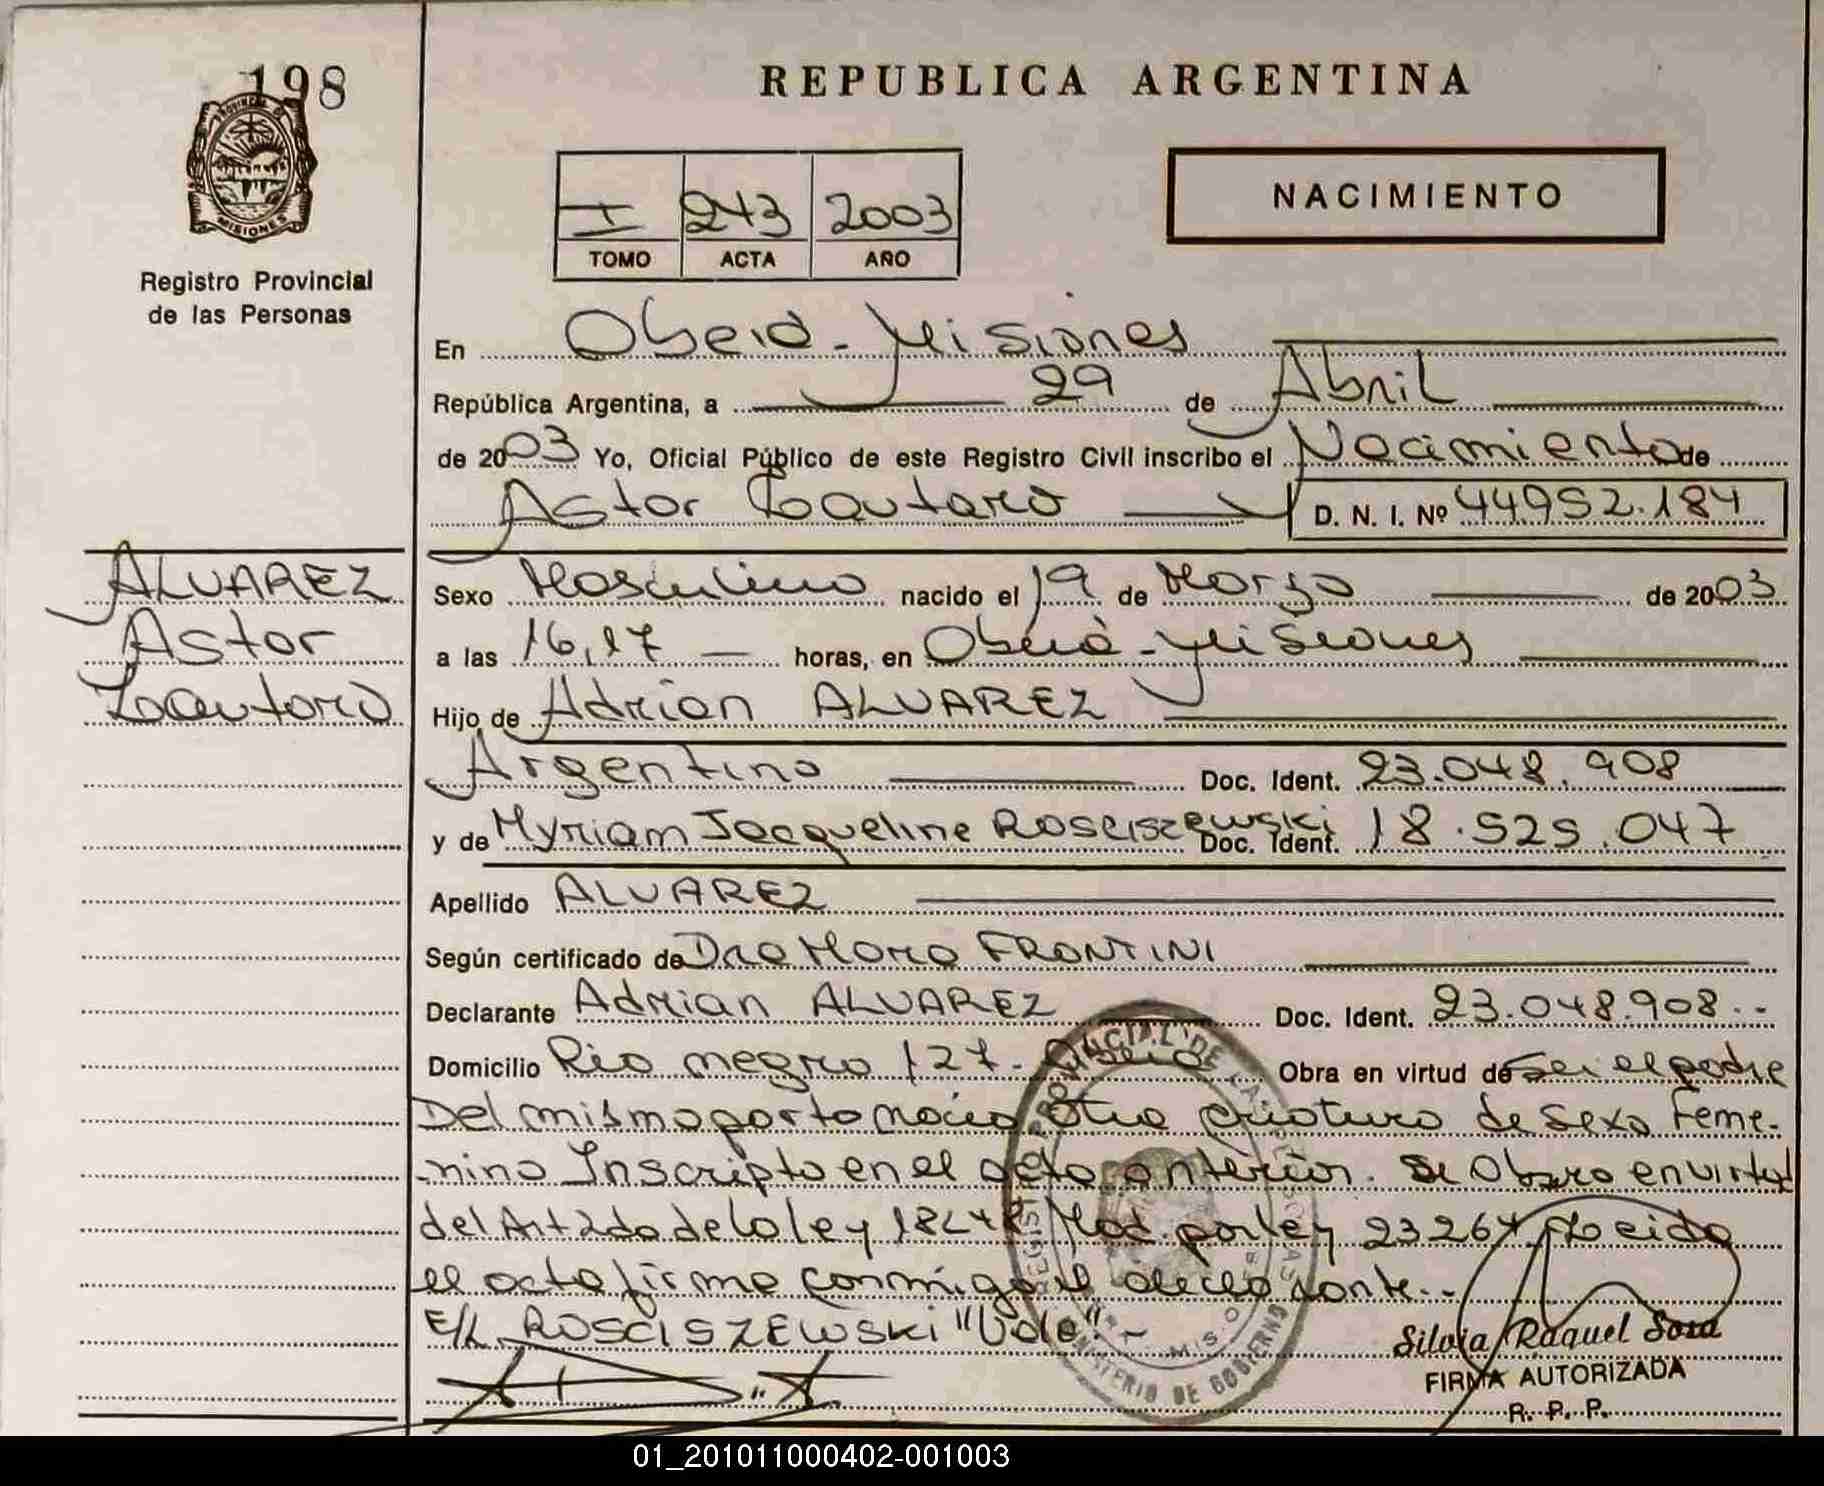 198
REPUBLICA ARGENTINA
NACIMIENTO
I 243 2003
TOMO ACTA AÑO
PROVINCIA DE
MISIONES
Registro Provincial
de las Personas
En Oberá - Misiones
República Argentina, a 29 de Abril
de 2003 Yo, Oficial Público de este Registro Civil inscribo el Nacimiento de
Astor Lautaro D. N. I. Nº 44952.184
ALVAREZ
Astor
Lautaro
Sexo Masculino nacido el 19 de Marzo de 2003
a las 16,17 horas, en Oberá - Misiones
Hijo de Adrian ALVAREZ
Argentino Doc. Ident. 23.048.908
y de Myriam Jacqueline Rosciszewski Doc. Ident. 18.525.047
Apellido ALVAREZ
Según certificado de Dra Mara FRONTINI
Declarante Adrian ALVAREZ Doc. Ident. 23.048.908.-
Domicilio Rio negro 127- Oberá Obra en virtud de ser el padre
Del mismo parto nacio otra criatura de sexo Feme-
nino Inscripto en el acta anterior. Se Obra en virtud
del Art de la ley Mod. por ley 23264 Leida
el acta firma conmigo el declarante.-
E/L ROSCISZEWSKI "Vale".-
REGISTRO PROVINCIAL DE LAS PERSONAS
MINISTERIO DE GOBIERNO
Silvia Raquel Sosa
FIRMA AUTORIZADA
R. P. P.
01_201011000402-001003